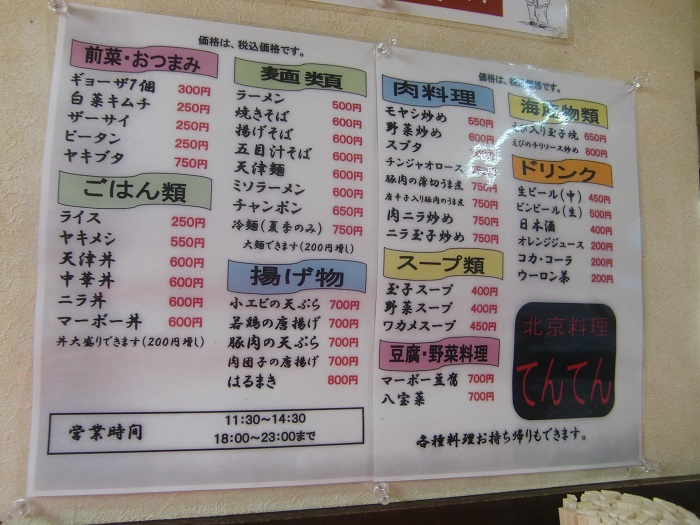 価格は、税込価格です。
前菜・おつまみ
ギョーザ7個 300円
白菜キムチ 250円
ザーサイ 250円
ピータン 250円
ヤキブタ 750円
ごはん類
ライス 250円
ヤキメシ 550円
天津丼 600円
中華丼 600円
ニラ丼 600円
マーボー丼 600円
丼大盛りできます(200円増し)
麺類
ラーメン 500円
焼きそば 600円
揚げそば 600円
五目汁そば 600円
天津麺 600円
ミソラーメン 600円
チャンポン 650円
冷麺(夏季のみ) 750円
大麺できます(200円増し)
揚げ物
小エビの天ぷら 700円
若鶏の唐揚げ 700円
豚肉の天ぷら 700円
肉団子の唐揚げ 700円
はるまき 800円
営業時間
11:30~14:30
18:00~23:00まで
価格は、税込価格です。
肉料理
モヤシ炒め 550円
野菜炒め 600円
スブタ 750円
チンジャオロース 750円
豚肉の薄切うま煮 750円
唐辛子入り豚肉のうま煮 750円
肉ニラ炒め 750円
ニラ玉子炒め 750円
スープ類
玉子スープ 400円
野菜スープ 400円
ワカメスープ 450円
豆腐・野菜料理
マーボー豆腐 700円
八宝菜 700円
海鮮物類
えび入り玉子焼 650円
えびのチリソース炒め 800円
ドリンク
生ビール(中) 450円
ビンビール(生) 500円
日本酒 400円
オレンジジュース 200円
コカ・コーラ 200円
ウーロン茶 200円
北京料理
てんてん
各種料理お持ち帰りもできます。